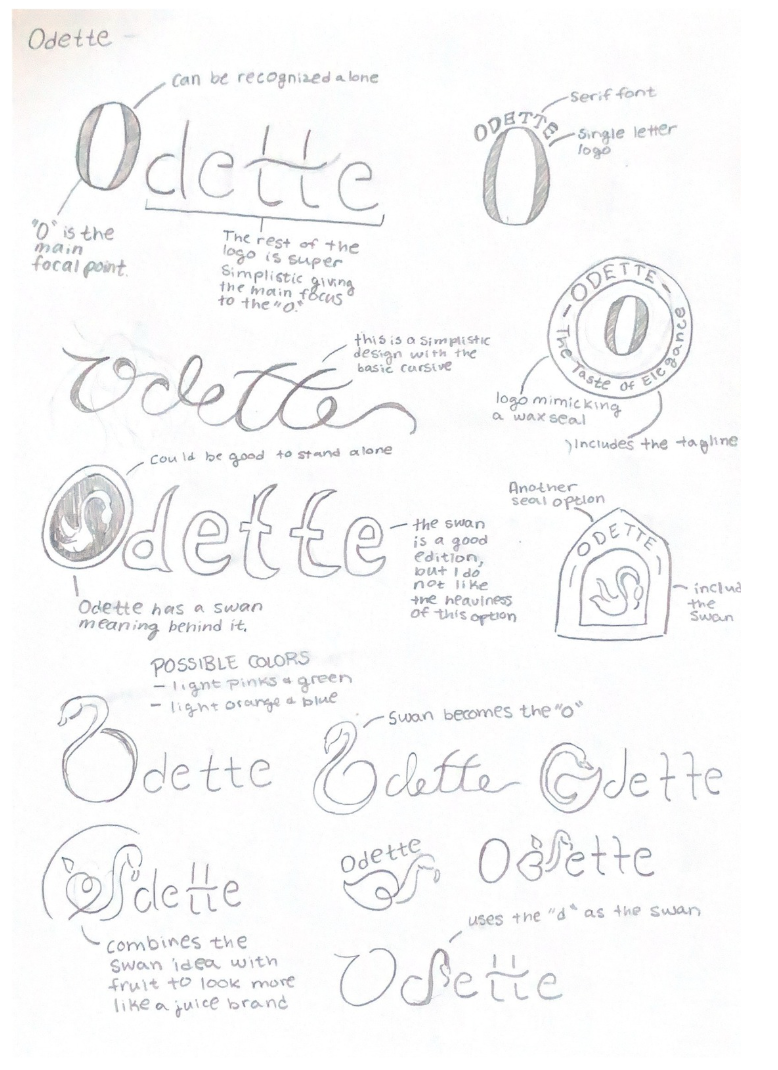 Odette -
can be recognized alone
Odette
"O" is the
main
focal point.
The rest of the
logo is super
simplistic giving
the main focus
to the "O."
serif font
ODETTE
single letter
logo
O
ODETTE
O
The Taste of Elegance
logo mimicking
a wax seal
Includes the tagline
this is a simplistic
design with the
basic cursive
Odette
Could be good to stand alone
Odette
the swan
is a good
edition,
but I do
not like
the heaviness
of this option
Odette has a swan
meaning behind it.
Another
seal option
ODETTE
includ
the
swan
POSSIBLE COLORS
- light pinks & green
- light orange & blue
Odette
Swan becomes the "O"
Odette
Odette
Odette
combines the
swan idea with
fruit to look more
like a juice brand
Odette
Odette
uses the "d" as the swan
Odette